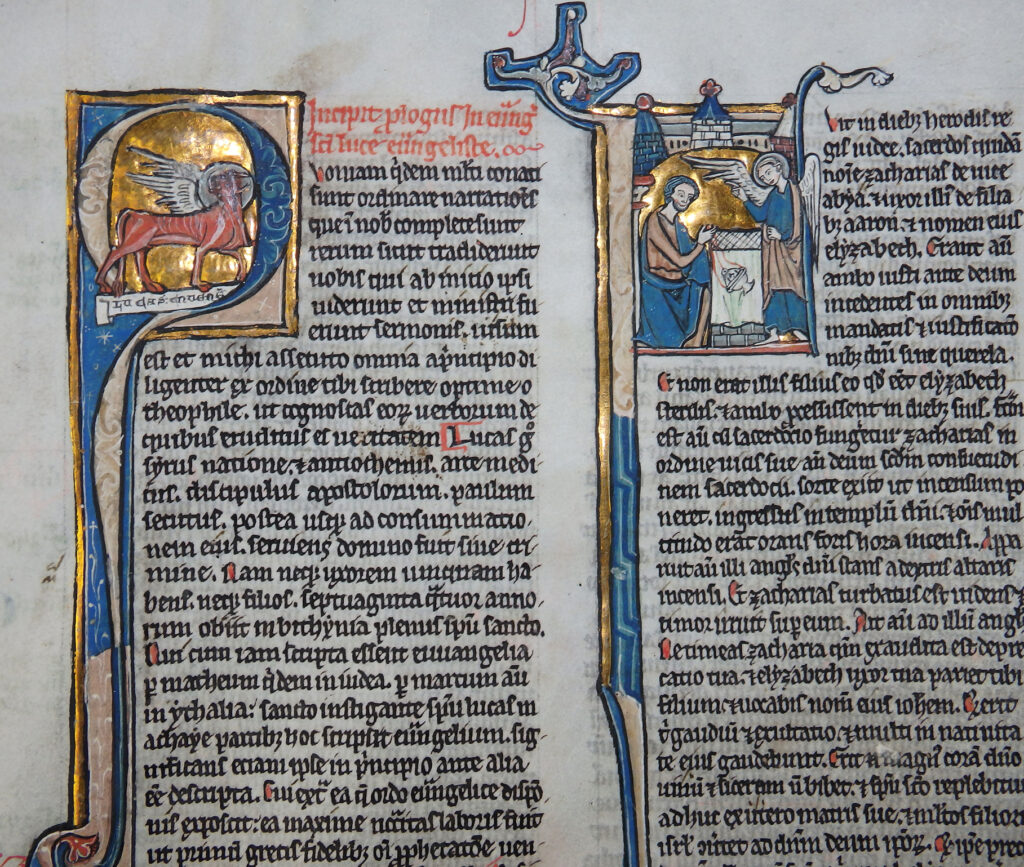 Incipit ꝓlogus In euu̅gꝭ
sc̅i luce euu̅geliste.
Quoniam q̇dem m̅lti conati
sunt ordinare narratio̅es
que i̅ nob̅ complete sunt
rerum sicut tradiderunt
nobis qui ab initio ip̅i
uiderunt et ministri fu
erunt sermonis. uisum
est et michi assecuto omnia a p̅ncipio di
ligenter ex ordine tibi scribere optime o
theophile. ut cognoscas eoꝝ uerborum de
quibus eruditus es ueritatem Lucas
syrus natione. ⁊ antiochensis. arte medi
cus. discipulus apostolorum. paulum
secutus. postea usqꝫ ad consummatio
nem eius. seruiens domino fuit sine cri
mine. Nam neqꝫ uxorem umquam ha
bens. neqꝫ filios. septuaginta q̇tuor anno
rum obiit in bithynia plenus sp̅u sancto.
Qui cum iam scripta essent euuangelia
ꝑ matheum q̇dem in iudea. ꝑ marcum au̅
in ythalia: sancto instigante sp̅u lucas in
achaye partibꝫ hoc scripsit euu̅gelium. sig
nificans etiam ipse in p̅ncipio ante alia
e̅e descripta. Cui ext̅ ea q̅ ordo euu̅gelice dispo̅
nis exposcit: ea maxime nc̅c̅itas laboris fuit
ut primu̅ grecis fidelibꝫ oi̅ ꝓphetatio̅e uen
Fuit in diebꝫ herodis re
gis iudee. sacerdos quida̅
no̅ie zacharias de uice
abya. ⁊ uxor illi̅ de filia
bꝫ aaron. ⁊ nomen eius
elyzabech. Erant au̅
ambo iusti ante deum
incedentes in omnibꝫ
mandatis ⁊ iustificatio̅
nibꝫ dn̅i sine querela.
Et non erat illis filius eo qd̅ e̅et elyzabech
sterilis. ⁊ ambo ꝓcessissent in diebꝫ suis. fc̅m
est au̅ cu̅ sacerdocio fungeret̅ zacharias in
ordine uicis sue an̅ deum. scd̅m consuetudi
nem sacerdocii. sorte exiit ut incensum po
neret. ingressus in templu̅ dn̅i. ⁊ o̅is mul
titudo erat orans foris hora incensi. Appa
ruit au̅ illi angl̅s dn̅i stans a dextris altaris
incensi. Et zacharias turbatus est uidens ⁊
timor irruit super eum. Ait au̅ ad illu̅ angl̅s
Ne timeas zacharia qm̅ exaudita est depre
catio tua. ⁊ elyzabech uxor tua pariet tibi
filium. ⁊ uocabis nom̅ eius ioh̅em. Et erit
t̅ gaudiu̅ ⁊ exultatio. ⁊ multi in natiuita
te eius gaudebunt. Erit ei̅ magn̅ cora̅ dn̅o
uinu̅ ⁊ siceram n̅ bibet. ⁊ sp̅u sc̅o replebitur
adhuc ex utero matris sue. ⁊ ml̅tos filiorum
isrl̅ co̅uertet ad dn̅m deum ipoꝝ. Et ip̅e prec